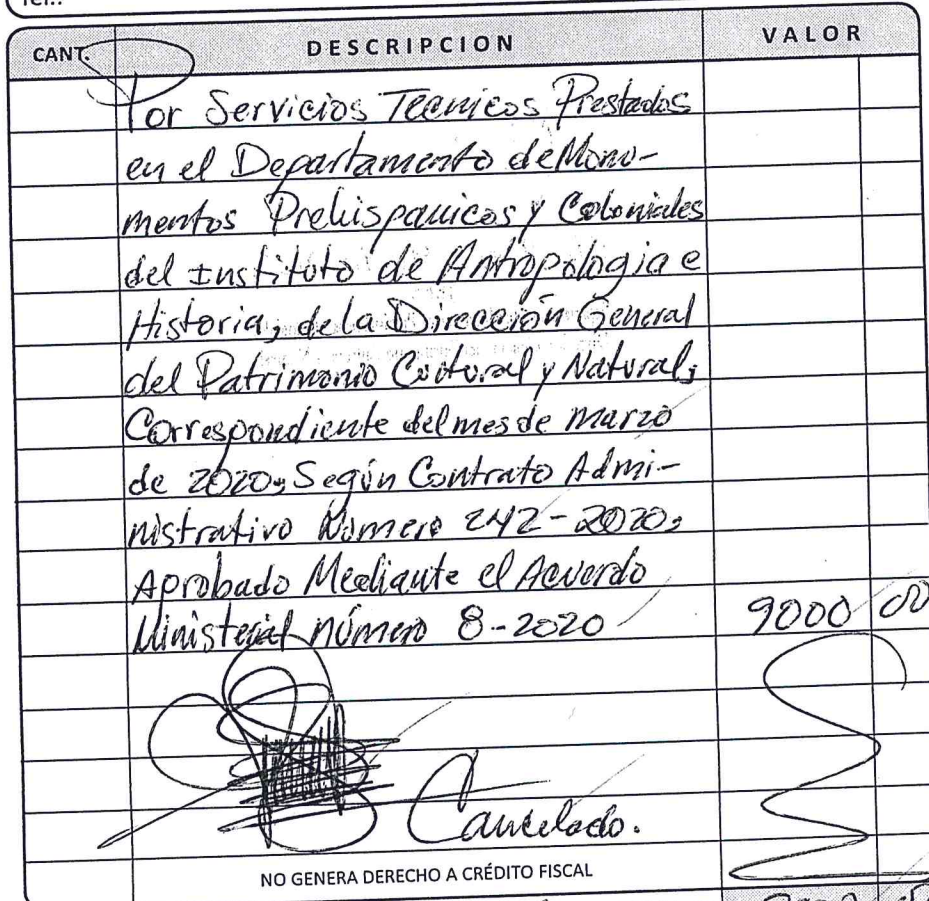 CANT. DESCRIPCION VALOR
Por Servicios Tecnicos Prestados
en el Departamento de Monu-
mentos Prehispanicos y Coloniales
del Instituto de Antropologia e
Historia, de la Dirección General
del Patrimonio Cultural y Natural,
Correspondiente del mes de marzo
de 2020, Según Contrato Admi-
nistrativo Número 242-2020,
Aprobado Mediante el Acuerdo
Ministerial número 8-2020 9000 00
Cancelado.
NO GENERA DERECHO A CRÉDITO FISCAL